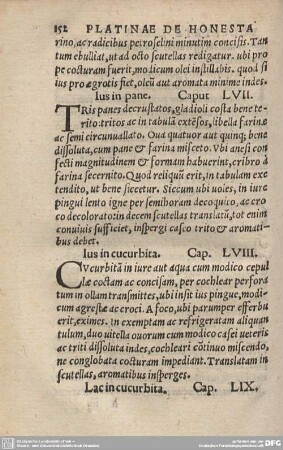 152 PLATINAE DE HONESTA
rino, ac radicibus petroselini minutim concisis. Tan
tum ebulliat, ut ad octo scutellas redigatur. ubi pro
pe cocturam fuerit, modicum olei instillabis. quod si
ius pro ægrotis fiet, oleū aut aromata minime indes.
Ius in pane. Caput LVII.
TRis panes decrustatos, gladioli costa bene te
rito: tritos ac in tabulā extēsos, libella farinæ
ac semi circunuallato. Oua quatuor aut quinq; bene
dissoluta, cum pane & farina misceto. Vbi anesi con
fecti magnitudinem & formam habuerint, cribro à
farina secernito. Quod reliquū erit, in tabulam exe
tendito, ut bene siccetur. Siccum ubi uoles, in iure
pingui lento igne per semihoram decoquito, ac cro
co decoloratoʒin decem scutellas translatū, tot enim
conuiuis sufficiet, inspergi casco trito & aromati=
bus debet.
Ius in cucurbita. Cap. LVIII.
CVcurbitā in iure aut aqua cum modico cepul
læ coctam ac concisam, per cochlear perfora
tum in ollam transmittes, ubi insit ius pingue, modi=
cum agrestæ ac croci. A foco, ubi parumper efferbu
erit, eximes. in exemptam ac refrigeratam aliquan
tulum, duo uitella ouorum cum modico casei ueteris
ac triti dissoluta indes, cochleari cōtinuo miscendo,
ne conglobata cocturam impediant. Translatam in
scutellas, aromatibus insperges.
Lac in cucurbita. Cap. LIX.